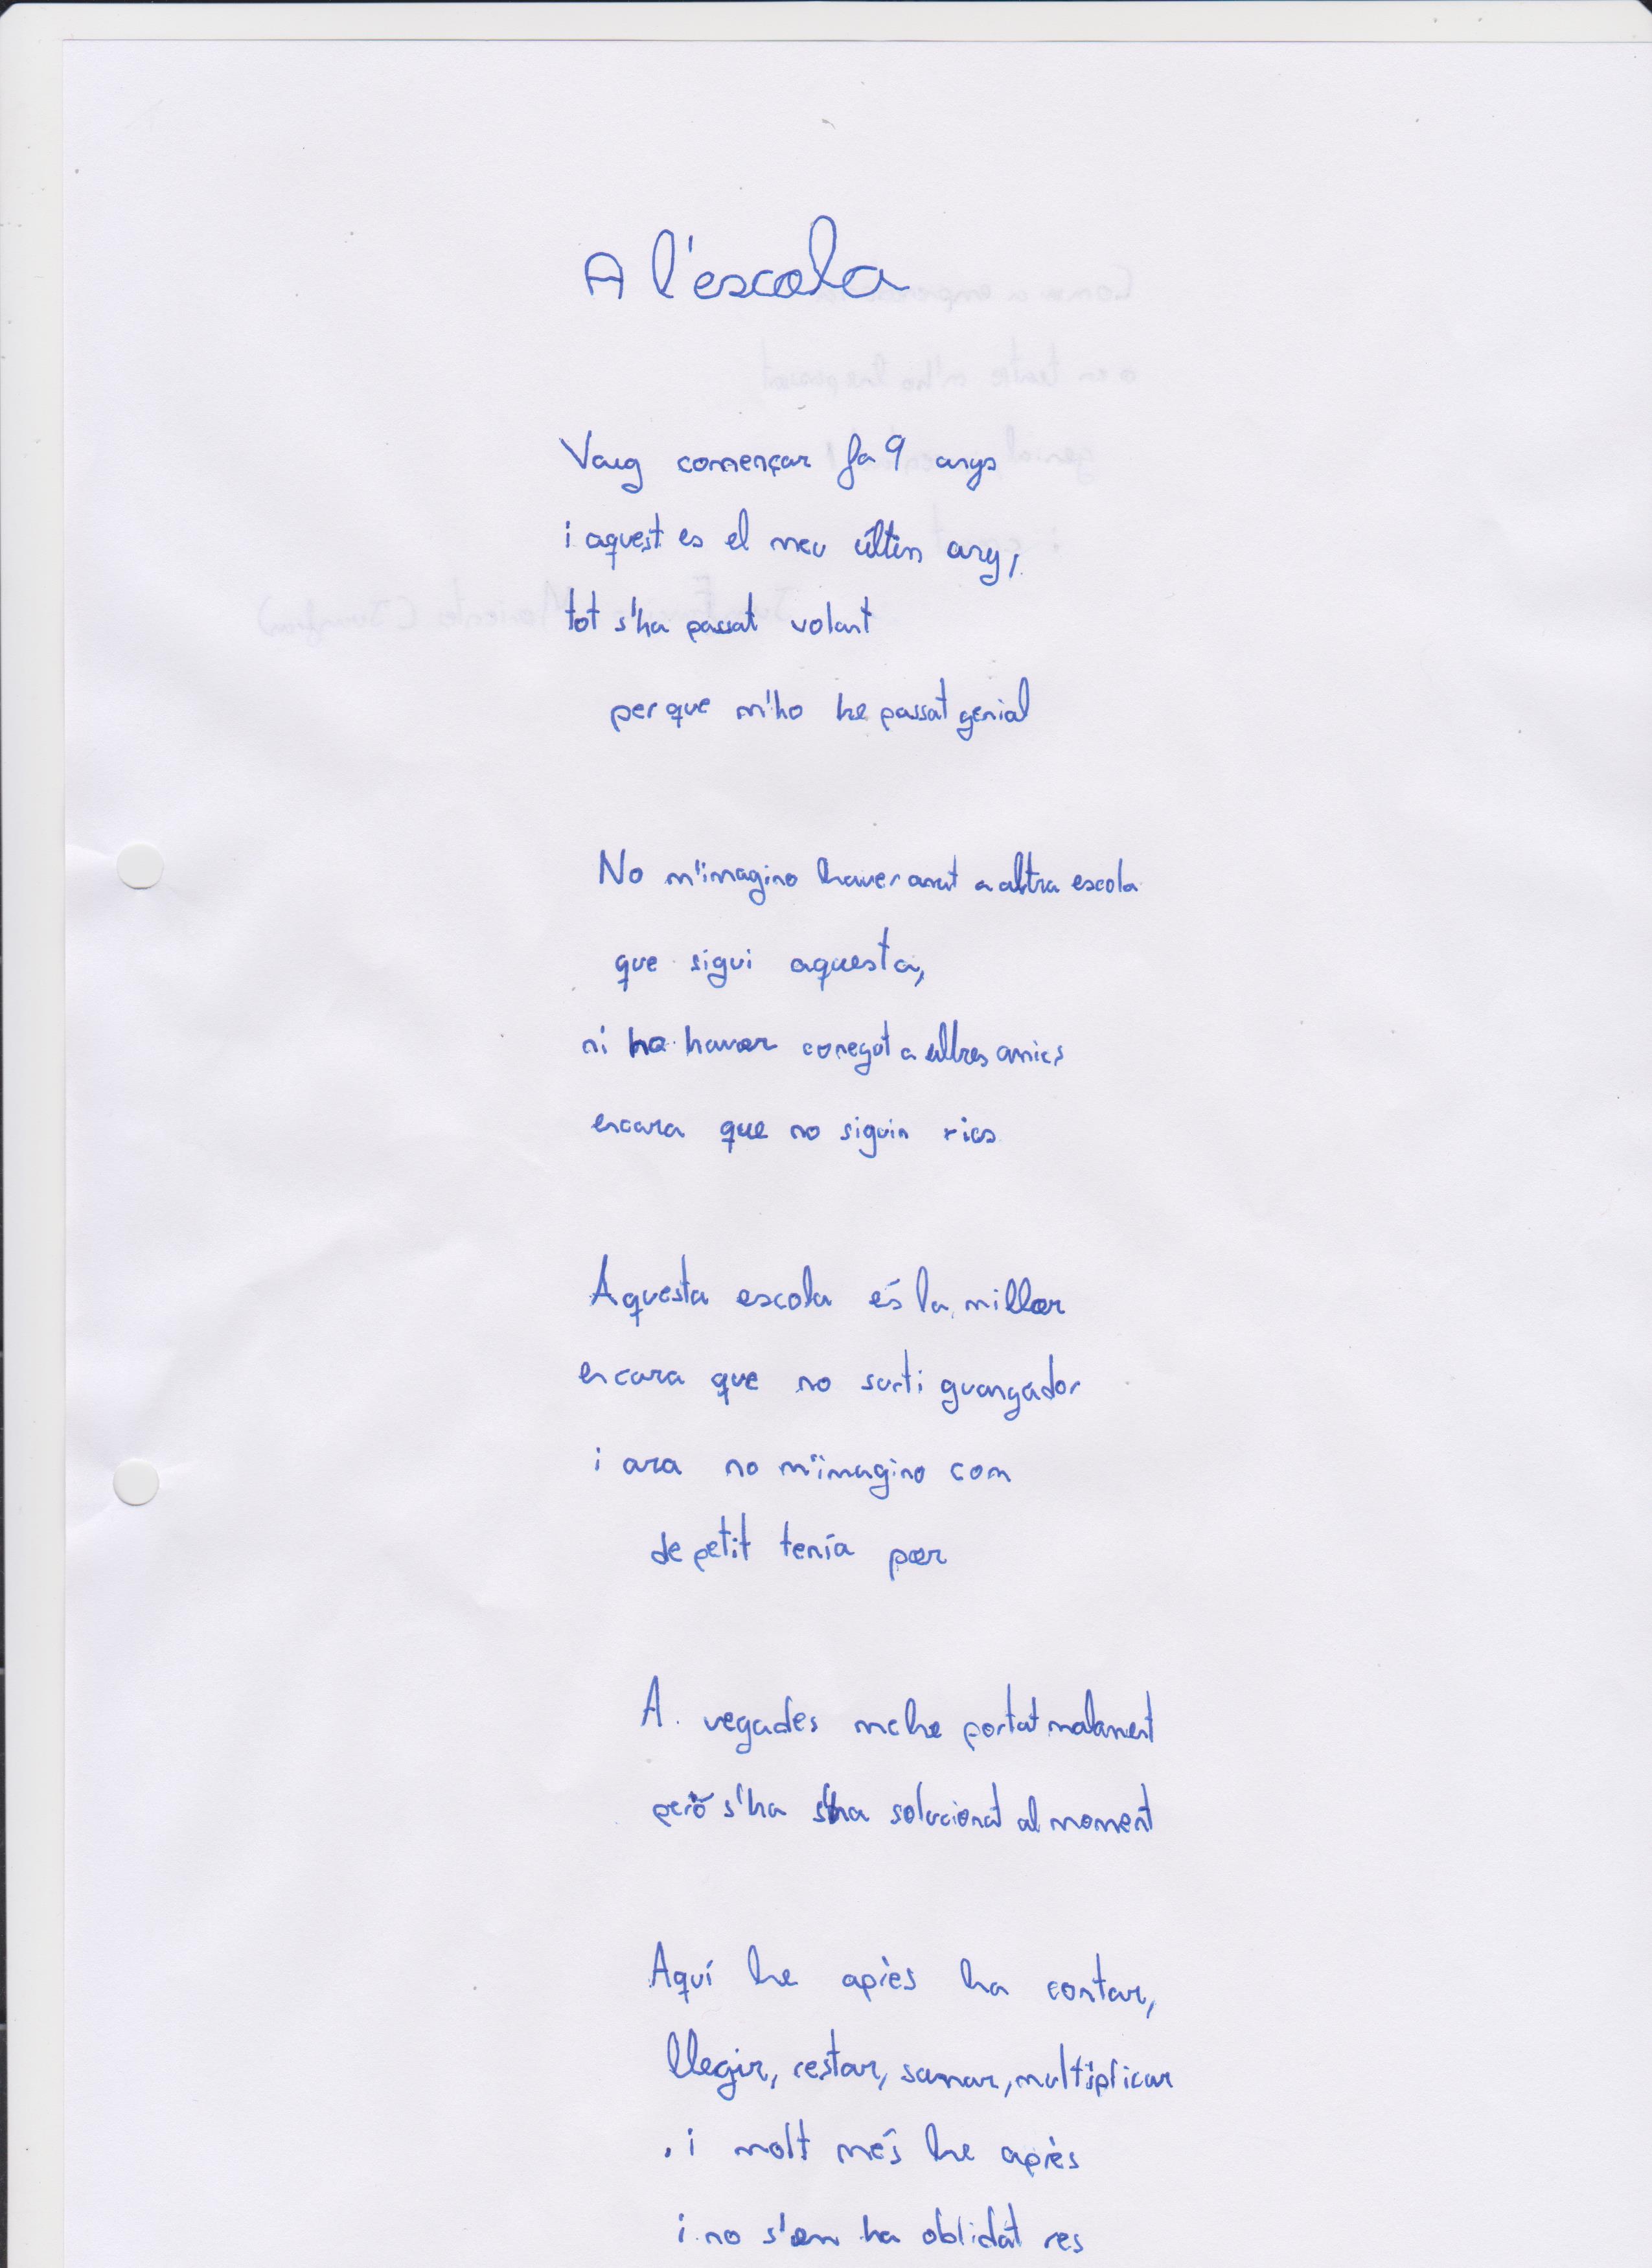 A l'escola
Vaig començar fa 9 anys
i aquest es el meu últim any,
tot s'ha passat volant
per que m'ho he passat genial
No m'imagino haver anat a altra escola
que sigui aquesta,
ni ha haver conegut a altres amics
encara que no siguin rics
Aquesta escola és la millor
encara que no surti guanyador
i ara no m'imagino com
de petit tenía por
A vegades me he portat malament
però s'ha s'ha solucionat al moment
Aquí he après ha contar,
llegir, restar, sumar, multiplicar
i molt més he après
i no s'em ha oblidat res